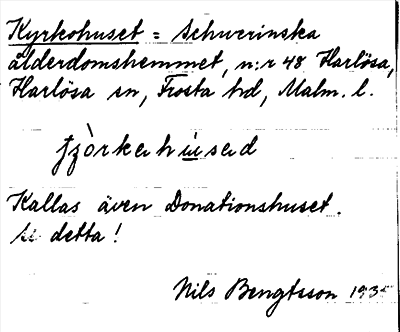 Kyrkohuset = Schwerinska
ålderdomshemmet, n:r 48 Harlösa,
Harlösa sn, Frosta hd, Malm. l.
Kallas även Donationshuset.
Se detta!
Nils Bengtsson 1935